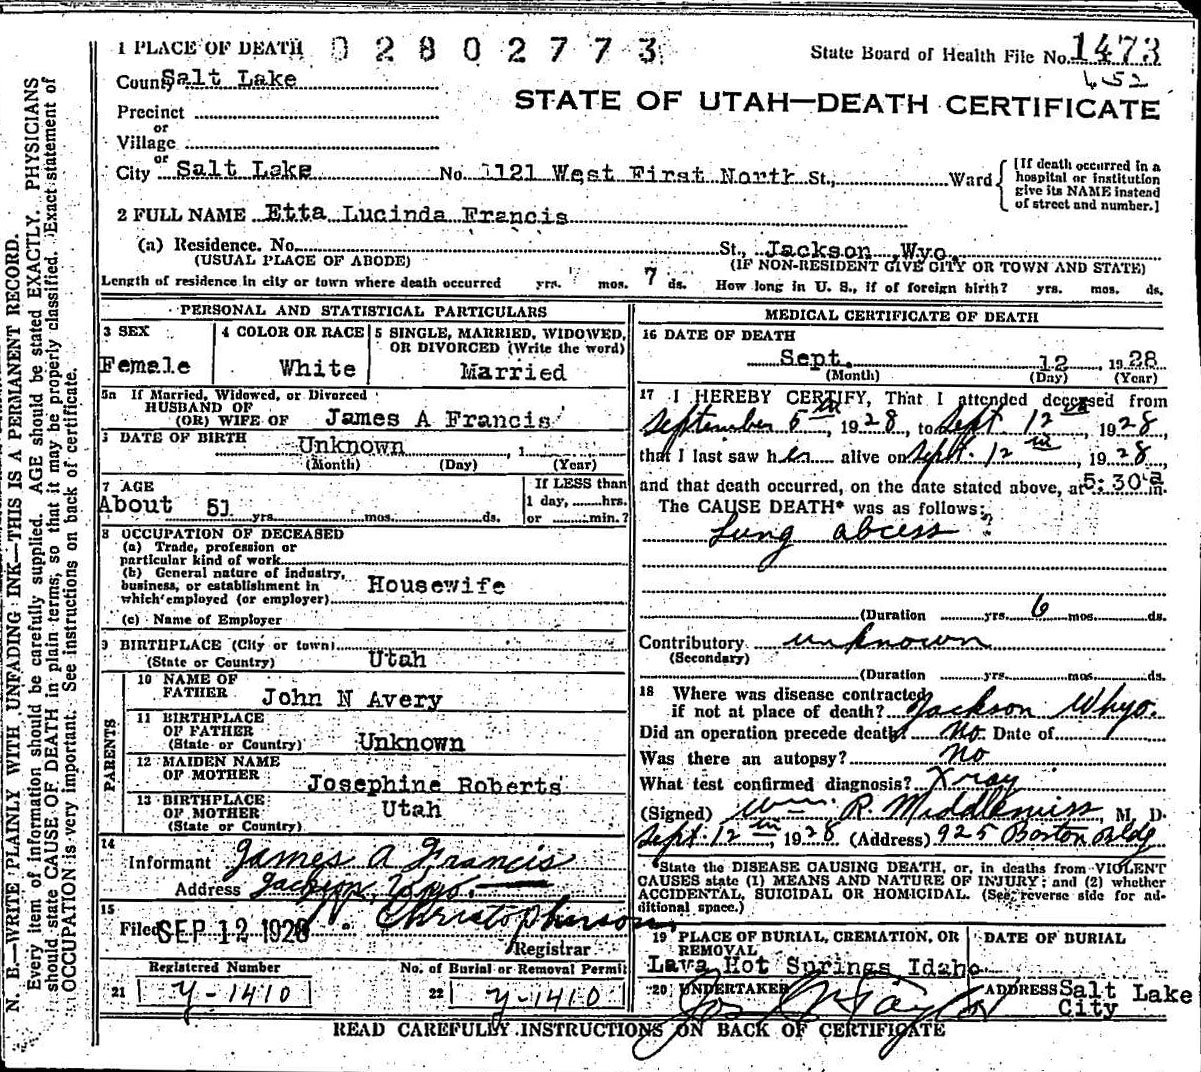 1 PLACE OF DEATH 0 2 8 0 2 7 7 3 State Board of Health File No. 1473
County Salt Lake 652
STATE OF UTAH—DEATH CERTIFICATE
Precinct
or
Village
or
City Salt Lake No. 1121 West First North St., Ward
[If death occurred in a
hospital or institution
give its NAME instead
of street and number.]
2 FULL NAME Etta Lucinda Francis
(a) Residence. No. St., Jackson ,Wyo.
(USUAL PLACE OF ABODE) (IF NON-RESIDENT GIVE CITY OR TOWN AND STATE)
Length of residence in city or town where death occurred yrs. mos. 7 ds. How long in U. S., if of foreign birth? yrs. mos. ds.
PERSONAL AND STATISTICAL PARTICULARS
3 SEX
Female
4 COLOR OR RACE
White
5 SINGLE, MARRIED, WIDOWED,
OR DIVORCED (Write the word)
Married
5a If Married, Widowed, or Divorced
HUSBAND OF
(OR) WIFE OF James A Francis
6 DATE OF BIRTH Unknown , 1
(Month) (Day) (Year)
7 AGE
About 51 yrs. mos. ds.
If LESS than
1 day, hrs.
or min.?
8 OCCUPATION OF DECEASED
(a) Trade, profession or
particular kind of work
(b) General nature of industry,
business, or establishment in
which employed (or employer) Housewife
(c) Name of Employer
9 BIRTHPLACE (City or town)
(State or Country) Utah
PARENTS
10 NAME OF
FATHER John N Avery
11 BIRTHPLACE
OF FATHER
(State or Country) Unknown
12 MAIDEN NAME
OF MOTHER Josephine Roberts
13 BIRTHPLACE
OF MOTHER Utah
(State or Country)
14
Informant James A Francis
Address Jackson, Wyo.
15
Filed SEP 12 1928 Christopherson
Registrar
Registered Number
21 Y-1410
No. of Burial or Removal Permit
22 Y-1410
MEDICAL CERTIFICATE OF DEATH
16 DATE OF DEATH
Sept. 12 , 1928
(Month) (Day) (Year)
17 I HEREBY CERTIFY, That I attended deceased from
September 5th, 1928, to Sept. 12th, 1928,
that I last saw her alive on Sept. 12th, 1928,
and that death occurred, on the date stated above, at 5:30 a m.
The CAUSE DEATH* was as follows:
Lung abcess ?
(Duration yrs. 6 mos. ds.
Contributory unknown
(Secondary)
(Duration yrs. mos. ds.
18 Where was disease contracted
if not at place of death? Jackson Whyo.
Did an operation precede death? No. Date of
Was there an autopsy? No
What test confirmed diagnosis? Xray
(Signed) Wm. R. Middlemiss, M. D.
Sept. 12th, 1928 (Address) 925 Boston Bldg
*State the DISEASE CAUSING DEATH, or, in deaths from VIOLENT
CAUSES state (1) MEANS AND NATURE OF INJURY; and (2) whether
ACCIDENTAL, SUICIDAL OR HOMICIDAL. (See reverse side for ad-
ditional space.)
19 PLACE OF BURIAL, CREMATION, OR
REMOVAL
Lava Hot Springs Idaho
DATE OF BURIAL
20 UNDERTAKER Jos Taylor
ADDRESS Salt Lake
City
READ CAREFULLY INSTRUCTIONS ON BACK OF CERTIFICATE
N. B.—WRITE PLAINLY WITH UNFADING INK—THIS IS A PERMANENT RECORD.
Every item of information should be carefully supplied. AGE should be stated EXACTLY. PHYSICIANS
should state CAUSE OF DEATH in plain terms, so that it may be properly classified. Exact statement of
OCCUPATION is very important. See instructions on back of certificate.